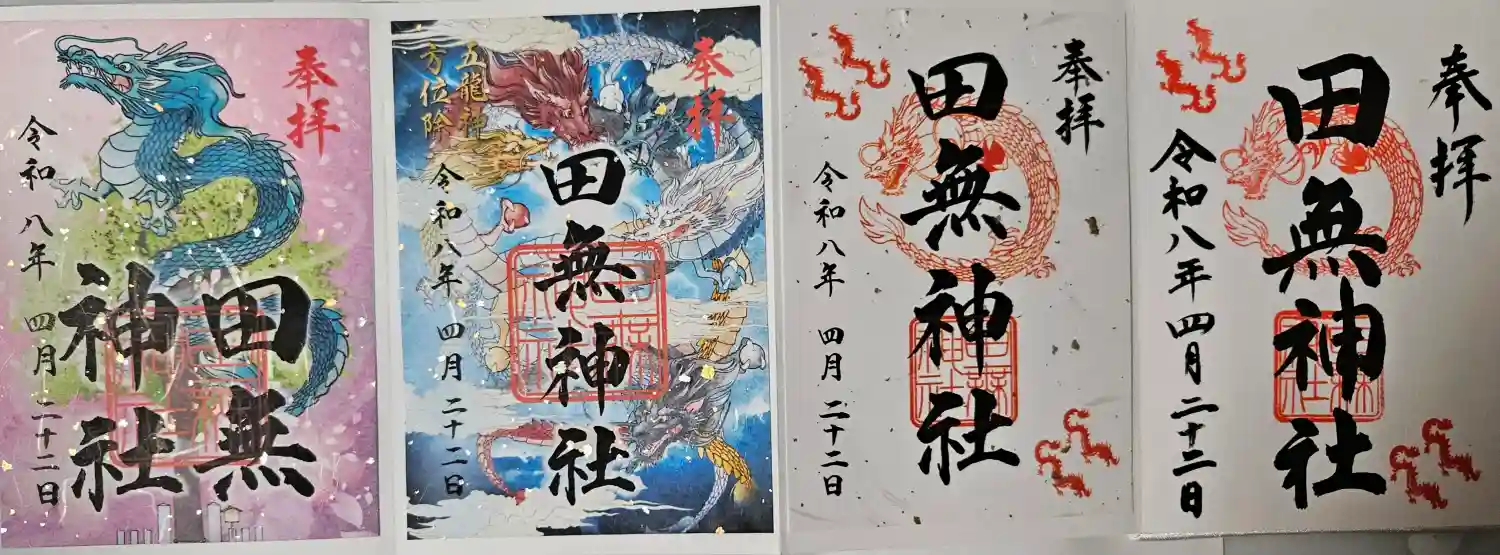 奉拝
田無
神社
令和八年 四月二十二日
奉拝
五龍神
方位除
田無神社
令和八年 四月 二十二日
奉拝
田無神社
令和八年 四月 二十二日
奉拝
田無神社
令和八年四月二十二日